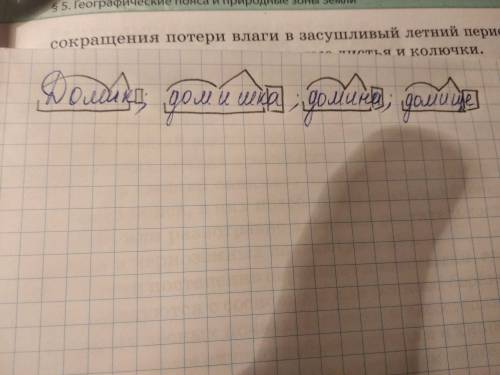 § 5. Географические пояса и природные зоны земли
сокращения потери влаги в засушливый летний пери
листья и колючки.
Домик; домишка; домина; домище